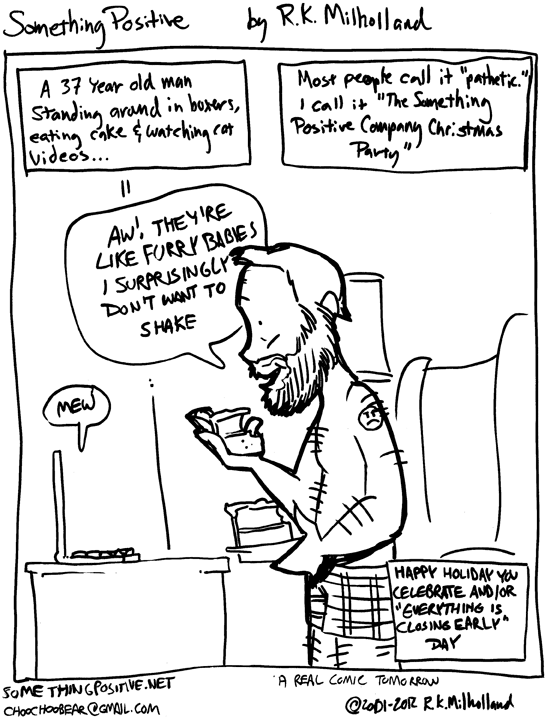 Something Positive by R.K. Milholland
A 37 Year old man
Standing around in boxers,
eating cake & watching cat
videos...
Most people call it "pathetic."
I call it "The Something
Positive Company Christmas
Party"
AW! THEY'RE
LIKE FURRY BABIES
I SURPRISINGLY
DON'T WANT TO
SHAKE
MEW
HAPPY HOLIDAY YOU
CELEBRATE AND/OR
"EVERYTHING IS
CLOSING EARLY"
DAY
SOMETHINGPOSITIVE.NET
CHOOCHOOBEAR@GMAIL.COM
A REAL COMIC TOMORROW
©2001-2012 R.K.Milholland